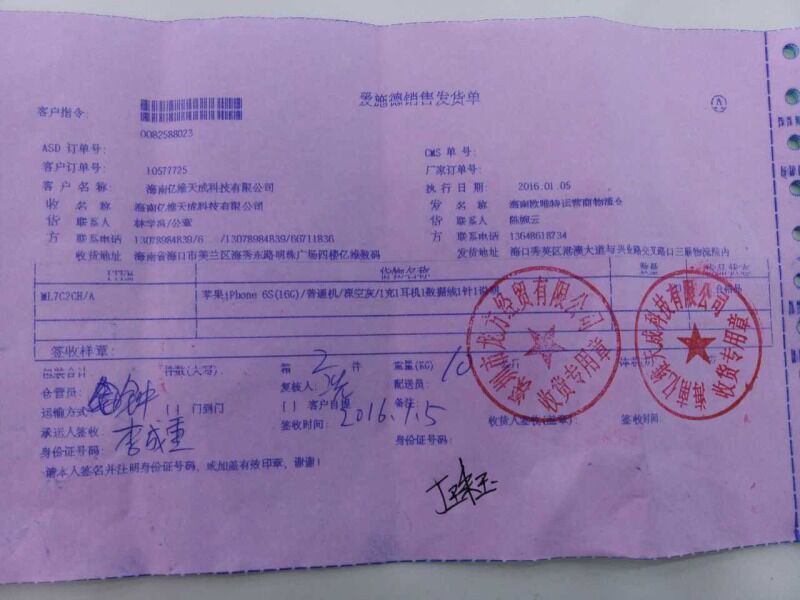 爱施德销售发货单
客户指令:
0082588023
ASD 订单号: CMS 单 号:
客户订单号: 10577725 厂家订单号:
客 户 名 称: 海南亿维天成科技有限公司 执 行 日 期: 2016.01.05
收 名 称: 海南亿维天成科技有限公司 发 名 称: 海南欧唯特运营商物流仓
货 联系人 林学禹/公章 货 联系人 陈婉云
方 联系电话 13078984839/6 /13078984839/66711836 方 联系电话: 13648618734
收货地址 海南省海口市美兰区海秀东路明珠广场四楼亿维数码 发货地址: 海口秀英区港澳大道与兴业路交叉路口三联物流院内
ITEM 货物名称 数量 货品状态
ML7C2CH/A 苹果;iPhone 6S(16G)/普通机/深空灰/1充1耳机1数据线1针1说明
签收样章:
包装合计: 件数(大写): 箱 2 件 重量(KG) 10 公斤
仓管员: 复核人: 配送员:
运输方式 [ ] 门到门 [ ] 客户自提 备注:
承运人签收: 李成重 签收时间: 2016.1.5 收货人签收(盖章): 签收时间:
身份证号码: 身份证号码:
请本人签名并注明身份证号码, 或加盖有效印章, 谢谢!
收货专用章
海南亿维天成科技有限公司
收货专用章